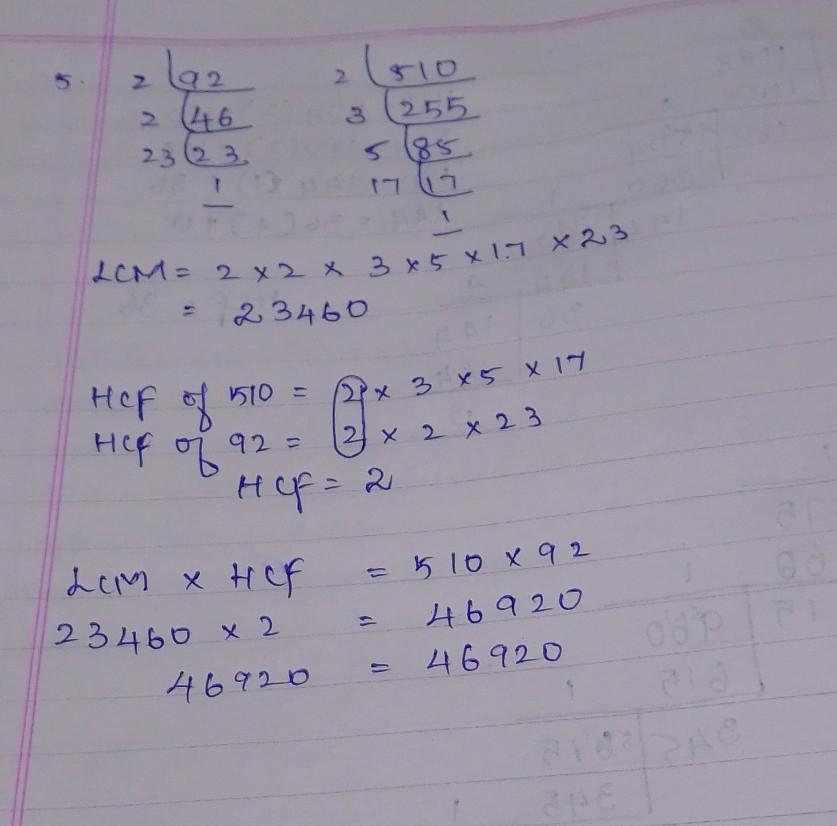 5. 2 92 2 510
2 46 3 255
23 23 5 85
1 17 17
1
LCM = 2 × 2 × 3 × 5 × 17 × 23
= 23460
HCF of 510 = 2 × 3 × 5 × 17
HCF of 92 = 2 × 2 × 23
HCF = 2
LCM × HCF = 510 × 92
23460 × 2 = 46920
46920 = 46920